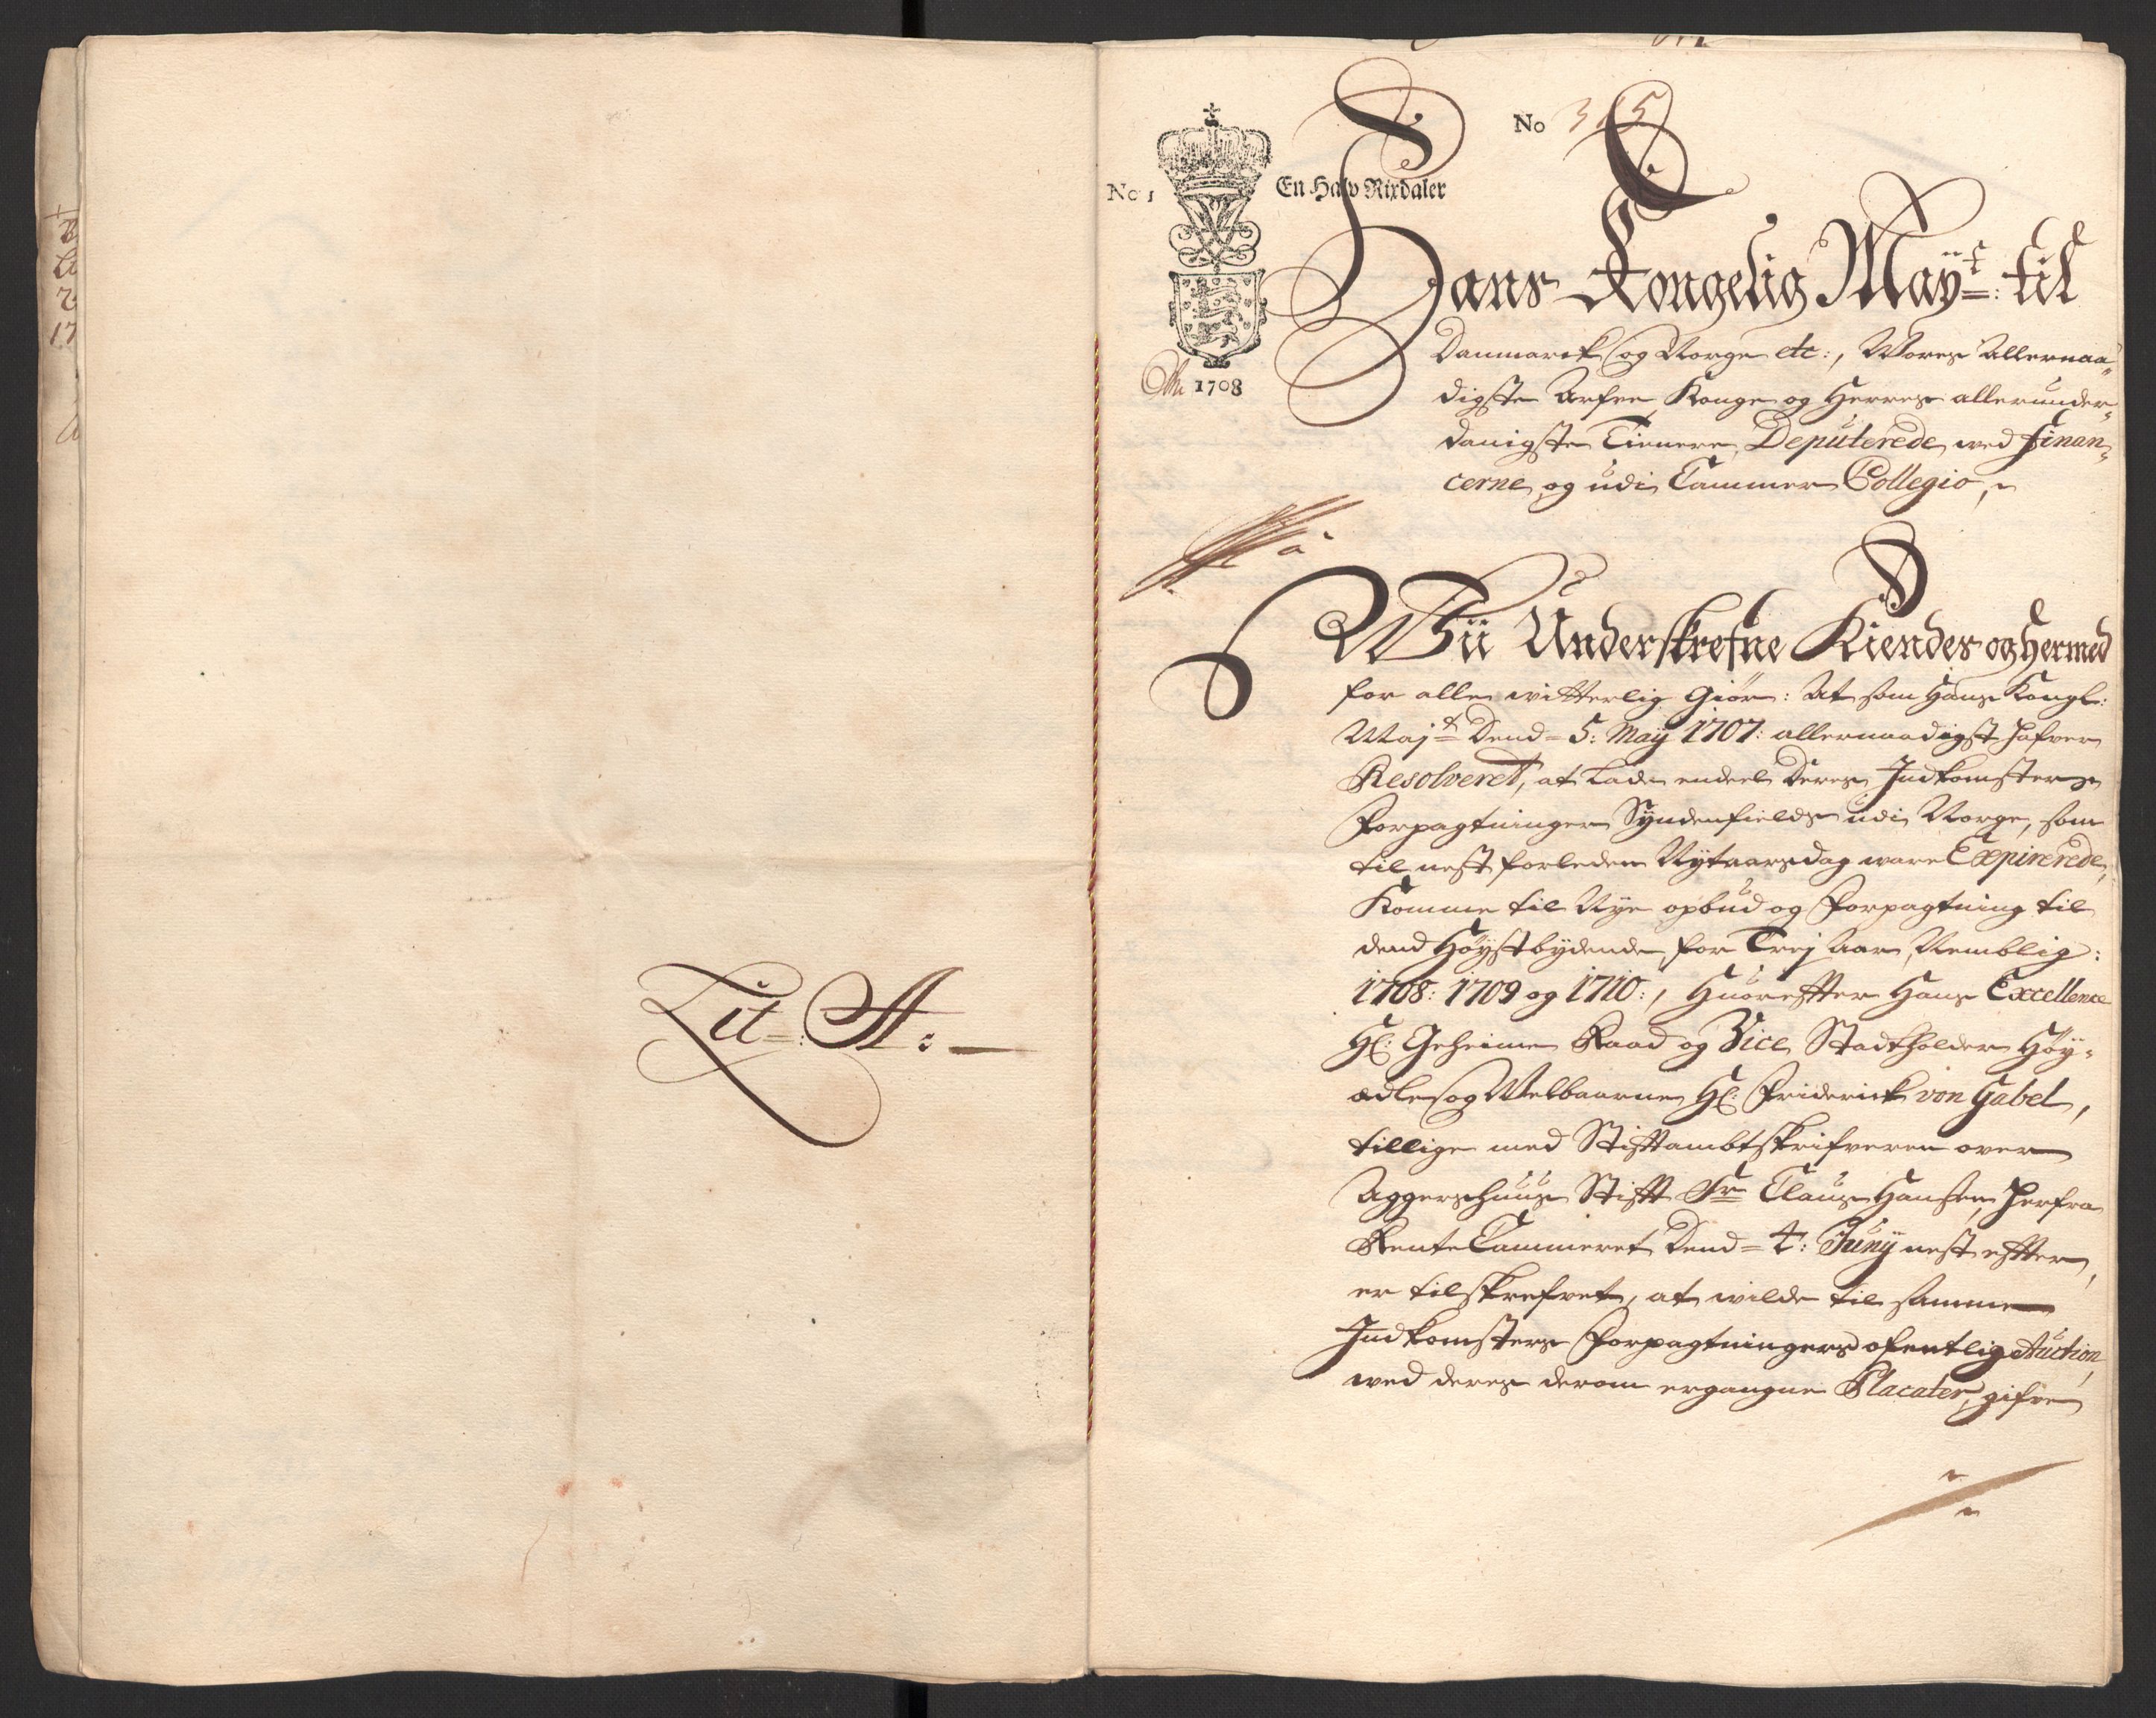 Lit: A: —
No 315
No 1
En Halv Rixdaler
Ao 1708
Hans Kongelig Mayt: til
Danmarck og Norge etc:, Vores Allernaa„
digste Arfve Konge og Herres allerunder„
danigste Tienere, Deputerede ved Finan„
cerne, og udi Cammer Collegio,
Wii Underskrefne Kiendes og hermed
for alle witterlig Giør: At som Hans Kongl:
Majt Dend 5: May 1707: allernaadigst hafver
Resolveret, at Lade endeel Deres Indkomsters
Forpagtninger Syndenfields udi Norge, som
til nest forleden Nytaarsdag ware Expirerede,
Komme til Nye opbud og Forpagtning til
dend Høystbydende, for Trej Aar, Nemblig:
1708: 1709 og 1710:, Huorefter Hans Excellence
Hr: Geheime Raad og Vice Stadtholder Høy„
ædle og Velbaarne Hr: Friderick von Gabel,
tillige med Stiftambtskrifveren over
Aggershuus Stift Sr Claus Hansen, herfra
Rente Cammeret Dend 4: Juny nest efter,
er tilskrefvet, at wilde til samme
Indkomsters Forpagtningers ofentlig Auction,
wed deres derom ergangne Placater, gifve